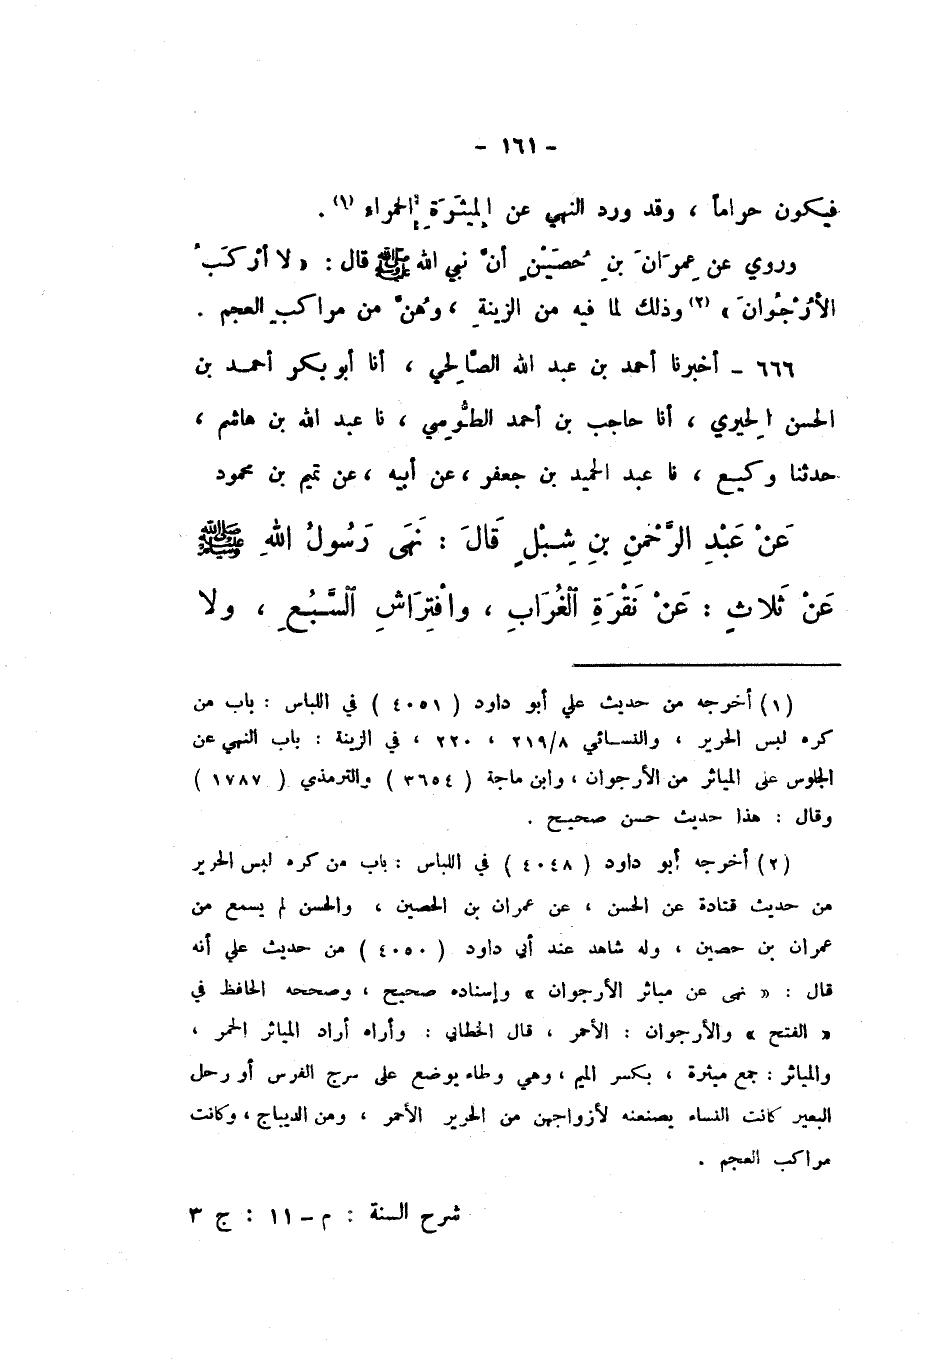 - ١٦١ -
فيكون حراماً ، وقد ورد النهي عن المِيثَرَةِ الحمراء (١) .
وروي عن عِمرَانَ بنِ حُصَيْنٍ أنَّ نبي الله ﷺ قال : « لا أرْكَبُ
الأُرْجُوانَ » (٢) وذلك لما فيه من الزينةِ ، وهُنَّ من مراكبِ العجم .
٦٦٦ - أخبرنا أحمد بن عبد الله الصَّالِحي ، أنا أبو بكر أحمد بن
الحسن الحِيري ، أنا حاجب بن أحمد الطُّوسِي ، نا عبد الله بن هاشم ،
حدثنا وكيع ، نا عبد الحميد بن جعفر ، عن أبيه ، عن تميم بن محمود
عَنْ عَبْدِ الرَّحْمنِ بنِ شِبْلٍ قَالَ : نَهَى رَسُولُ اللهِ ﷺ
عَنْ ثَلاثٍ : عَنْ نَقْرَةِ ٱلْغُرَابِ ، وافْتِرَاشِ ٱلسَّبُعِ ، ولا
(١) أخرجه من حديث علي أبو داود ( ٤٠٥١ ) في اللباس : باب من
كره لبس الحرير ، والنسائي ٢١٩/٨ ، ٢٢٠ ، في الزينة : باب النهي عن
الجلوس على المياثر من الأرجوان ، وابن ماجة ( ٣٦٥٤ ) والترمذي ( ١٧٨٧ )
وقال : هذا حديث حسن صحيح .
(٢) أخرجه أبو داود ( ٤٠٤٨ ) في اللباس : باب من كره لبس الحرير
من حديث قتادة عن الحسن ، عن عمران بن الحصين ، والحسن لم يسمع من
عمران بن حصين ، وله شاهد عند أبي داود ( ٤٠٥٠ ) من حديث علي أنه
قال : « نهى عن مياثر الأرجوان » وإسناده صحيح ، وصححه الحافظ في
« الفتح » والأرجوان : الأحمر ، قال الخطابي : وأراه أراد المياثر الحمر ،
والمياثر : جمع ميثرة ، بكسر الميم ، وهي وطاء يوضع على سرج الفرس أو رحل
البعير كانت النساء يصنعنه لأزواجهن من الحرير الأحمر ، ومن الديباج ، وكانت
مراكب العجم .
شرح السنة : م - ١١ : ج ٣